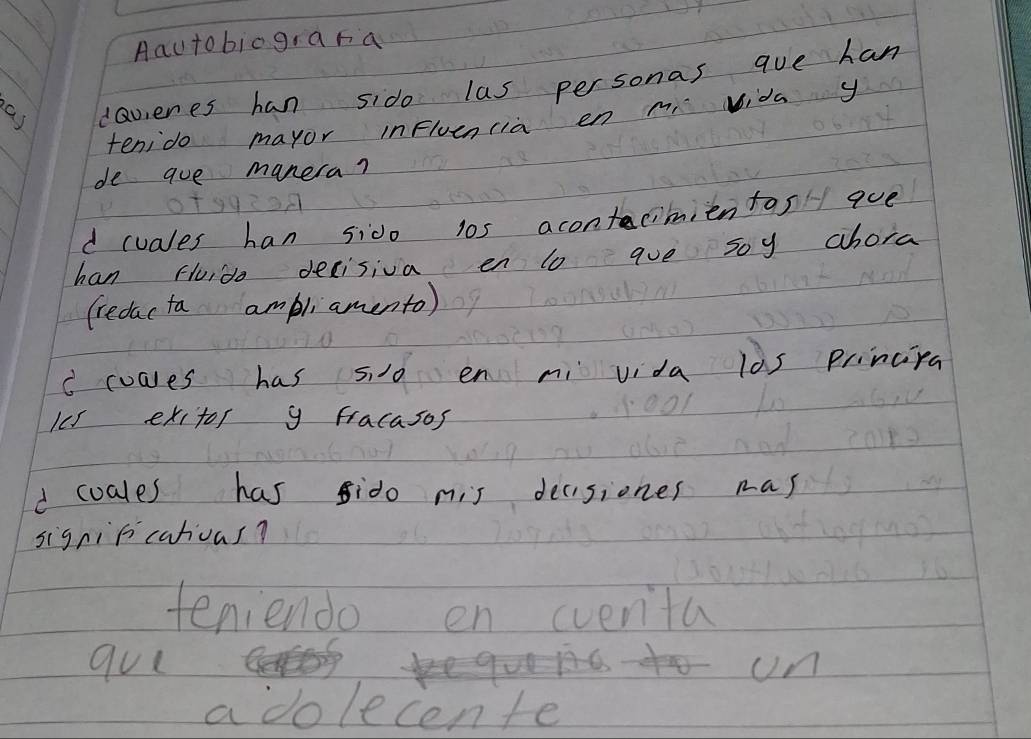 Aautobiografia
¿Quienes han sido las personas que han
tenido mayor influencia en mi vida y
de que manera?
¿ cuales han sido los acontecimientos que
han fluido decisiva en lo que soy ahora
(redacta ampliamento)
¿ cuales has sido en mi vida los principa
les exitos y fracasos
¿ cuales has sido mis decisiones mas
significativas?
teniendo en cuenta
que un
adolecente